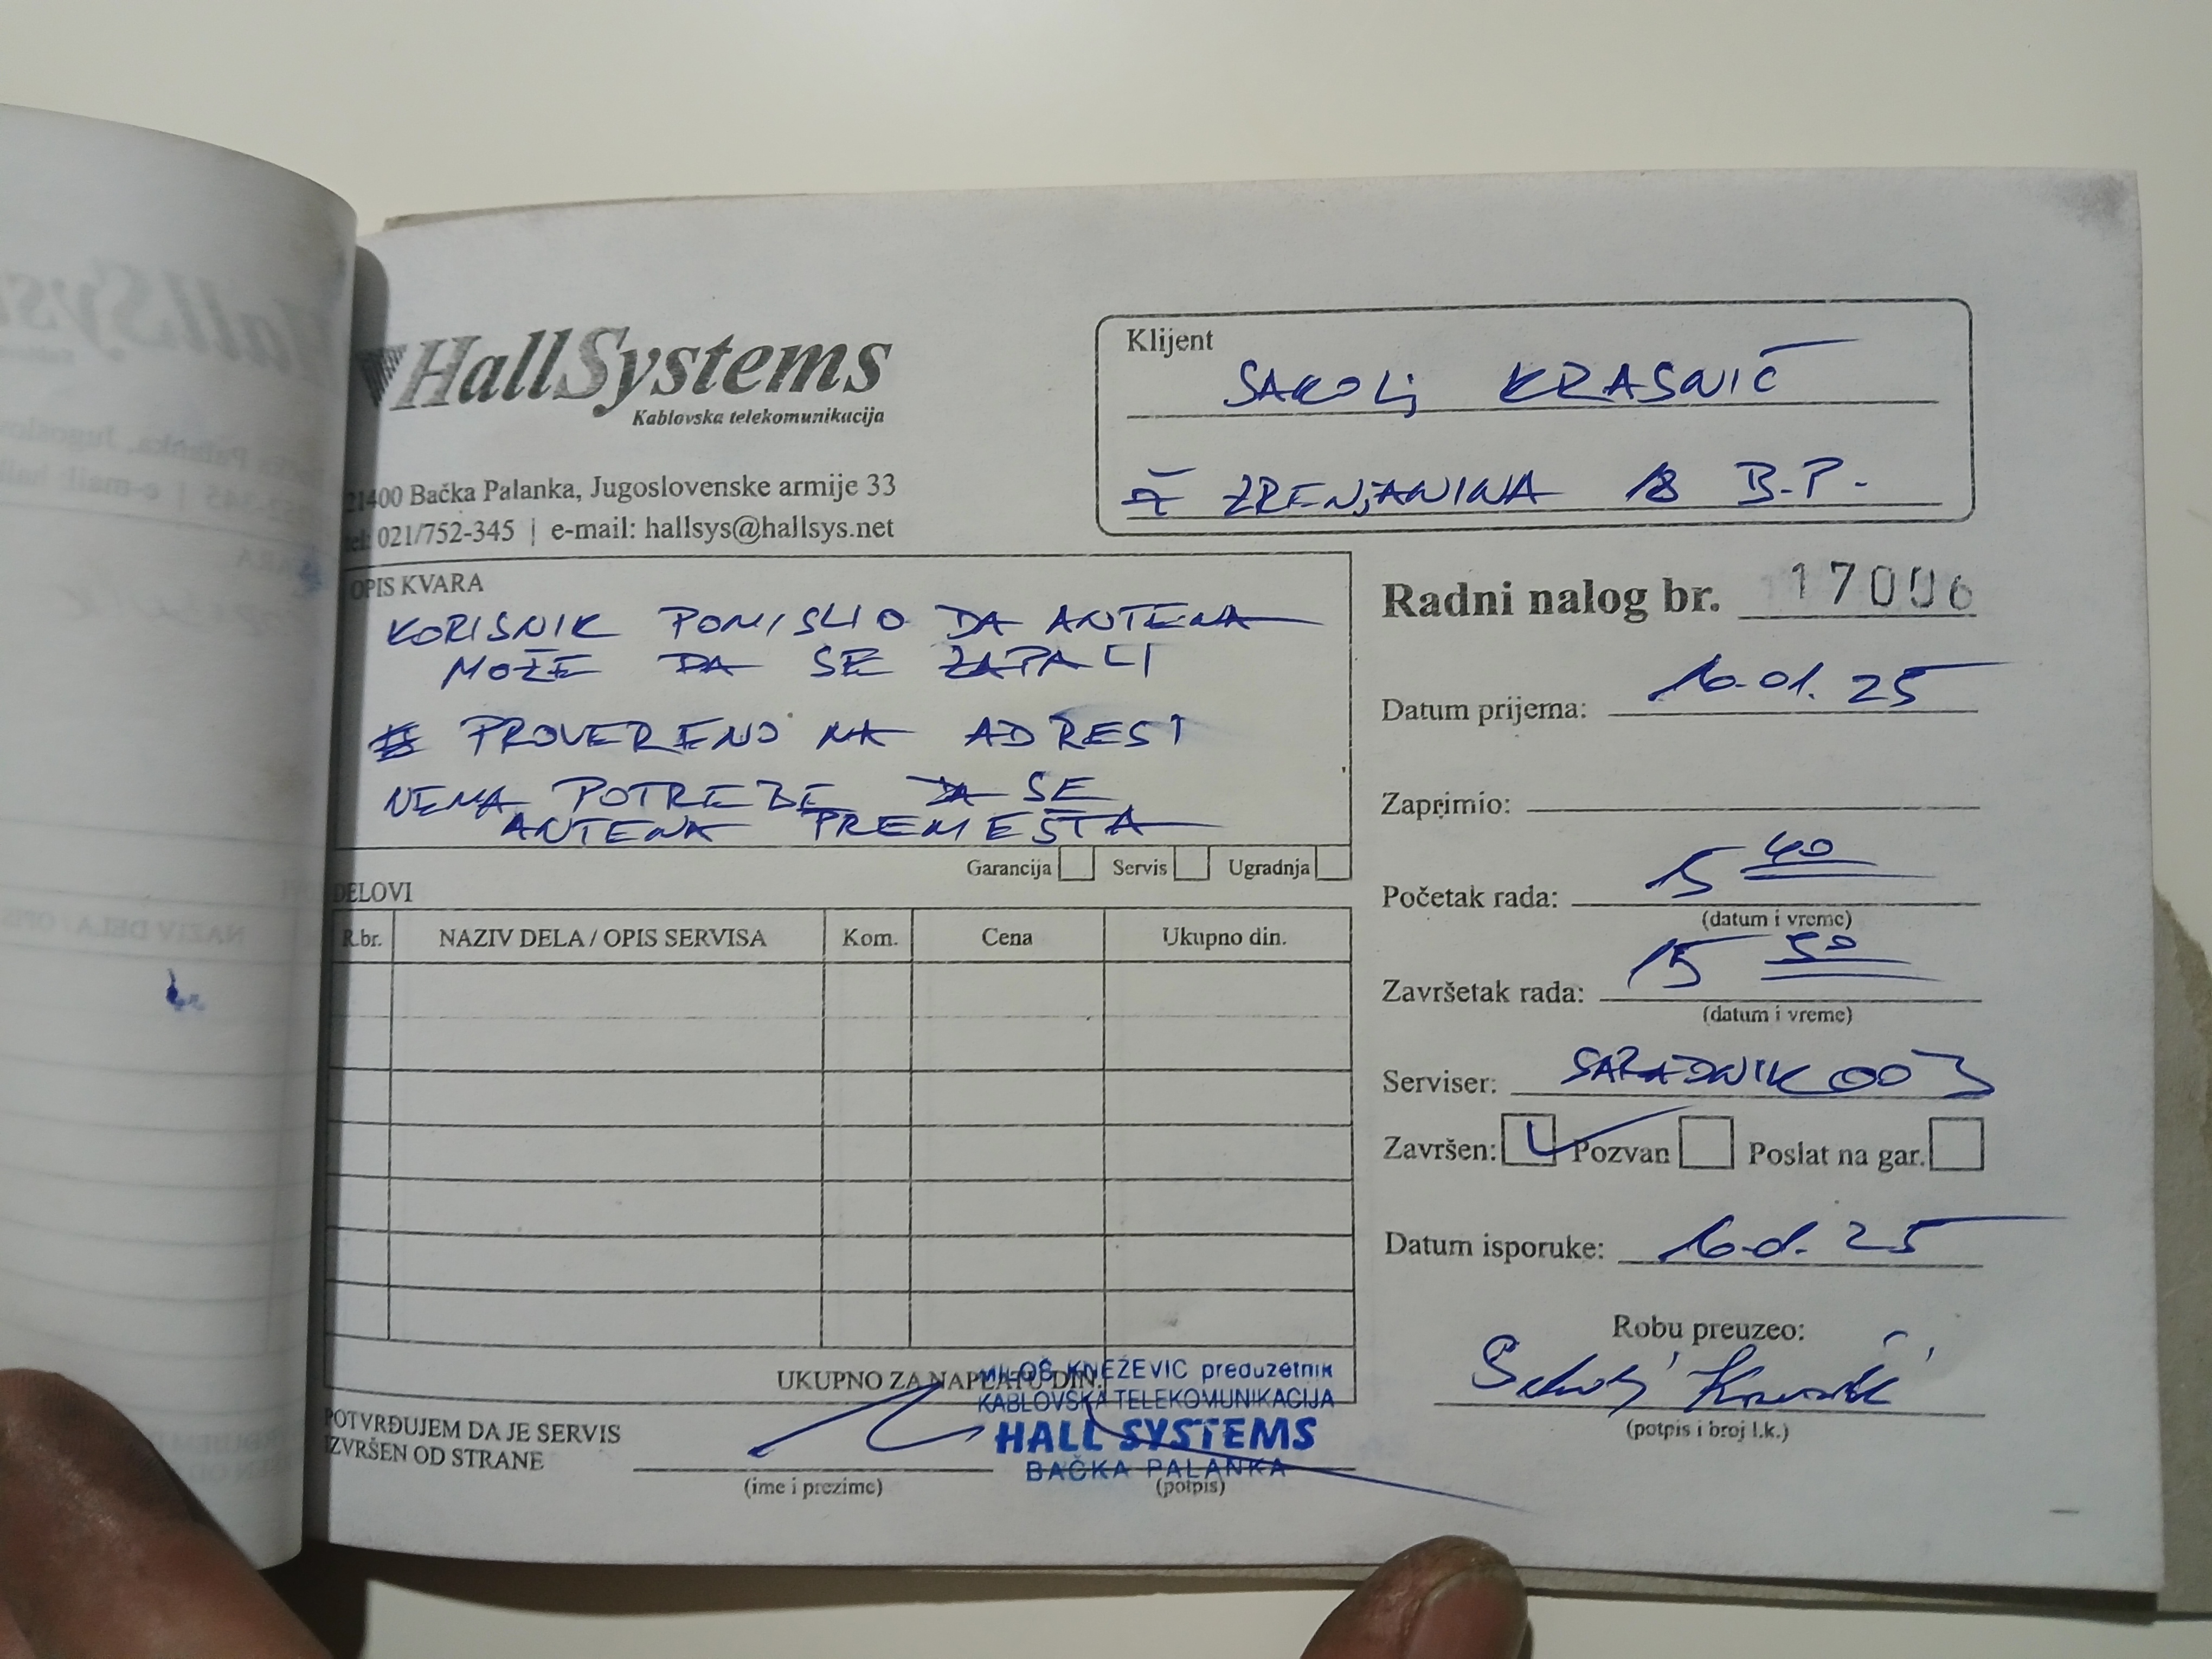 HallSystems
Kablovska telekomunikacija
21400 Bačka Palanka, Jugoslovenske armije 33
tel: 021/752-345 | e-mail: hallsys@hallsys.net
Klijent
SAKOLJ KRASNIČ
Ž ZRENJANINA 18 B.P.
OPIS KVARA
KORISNIK POMISLIO DA ANTENA
MOŽE DA SE ZAPALI
PROVERENO NA ADRESI
NEMA POTREBE DA SE
ANTENA PREMEŠTA
Garancija Servis Ugradnja
Radni nalog br. 17006
Datum prijema: 16.01.25
Zaprimio:
Početak rada: 15 40
(datum i vreme)
Završetak rada: 15 50
(datum i vreme)
Serviser: SARADNIK 003
Završen: Pozvan Poslat na gar.
Datum isporuke: 16.01.25
Robu preuzeo:
(potpis i broj l.k.)
DELOVI
R.br. NAZIV DELA / OPIS SERVISA Kom. Cena Ukupno din.
UKUPNO ZA NAPLATU DIN.
MILOŠ KNEŽEVIĆ preduzetnik
KABLOVSKA TELEKOMUNIKACIJA
HALL SYSTEMS
BAČKA PALANKA
POTVRĐUJEM DA JE SERVIS
IZVRŠEN OD STRANE
(ime i prezime) (potpis)